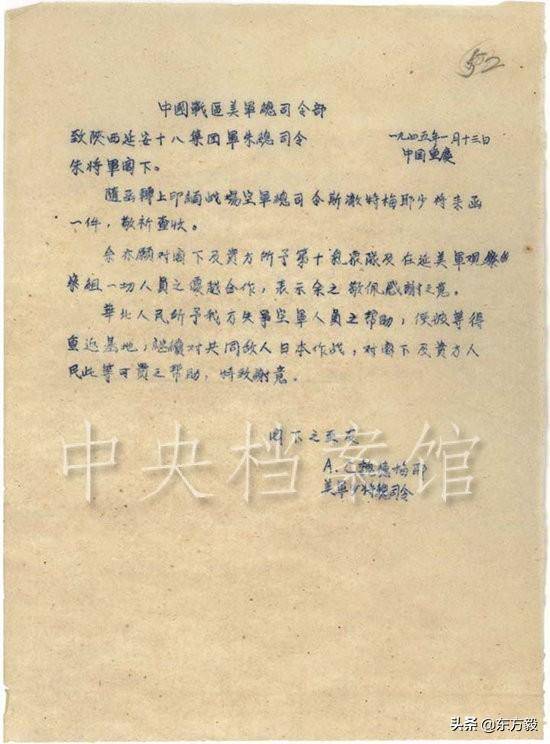 52
中國戰區美軍總司令部
致陝西延安十八集团軍朱總司令
一九四五年一月十三日
中国重慶
朱將軍阁下。
隨函轉上印緬战場空軍總司令斯潋特梅耶少将来函
一件，敬祈查收。
余亦願对阁下及貴方所予第十氣象隊及在延美軍覌察
组一切人員之優越合作，表示余之敬佩感謝之意。
華北人民所予我方失事空軍人員之帮助，使彼等得
重返基地，継續对共同敌人日本作战，对阁下及貴方人
民此等可貴之帮助，特致謝意。
阁下之至友
A.C.魏德梅耶
美軍少将總司令
中央档案馆
头条 @东方毅